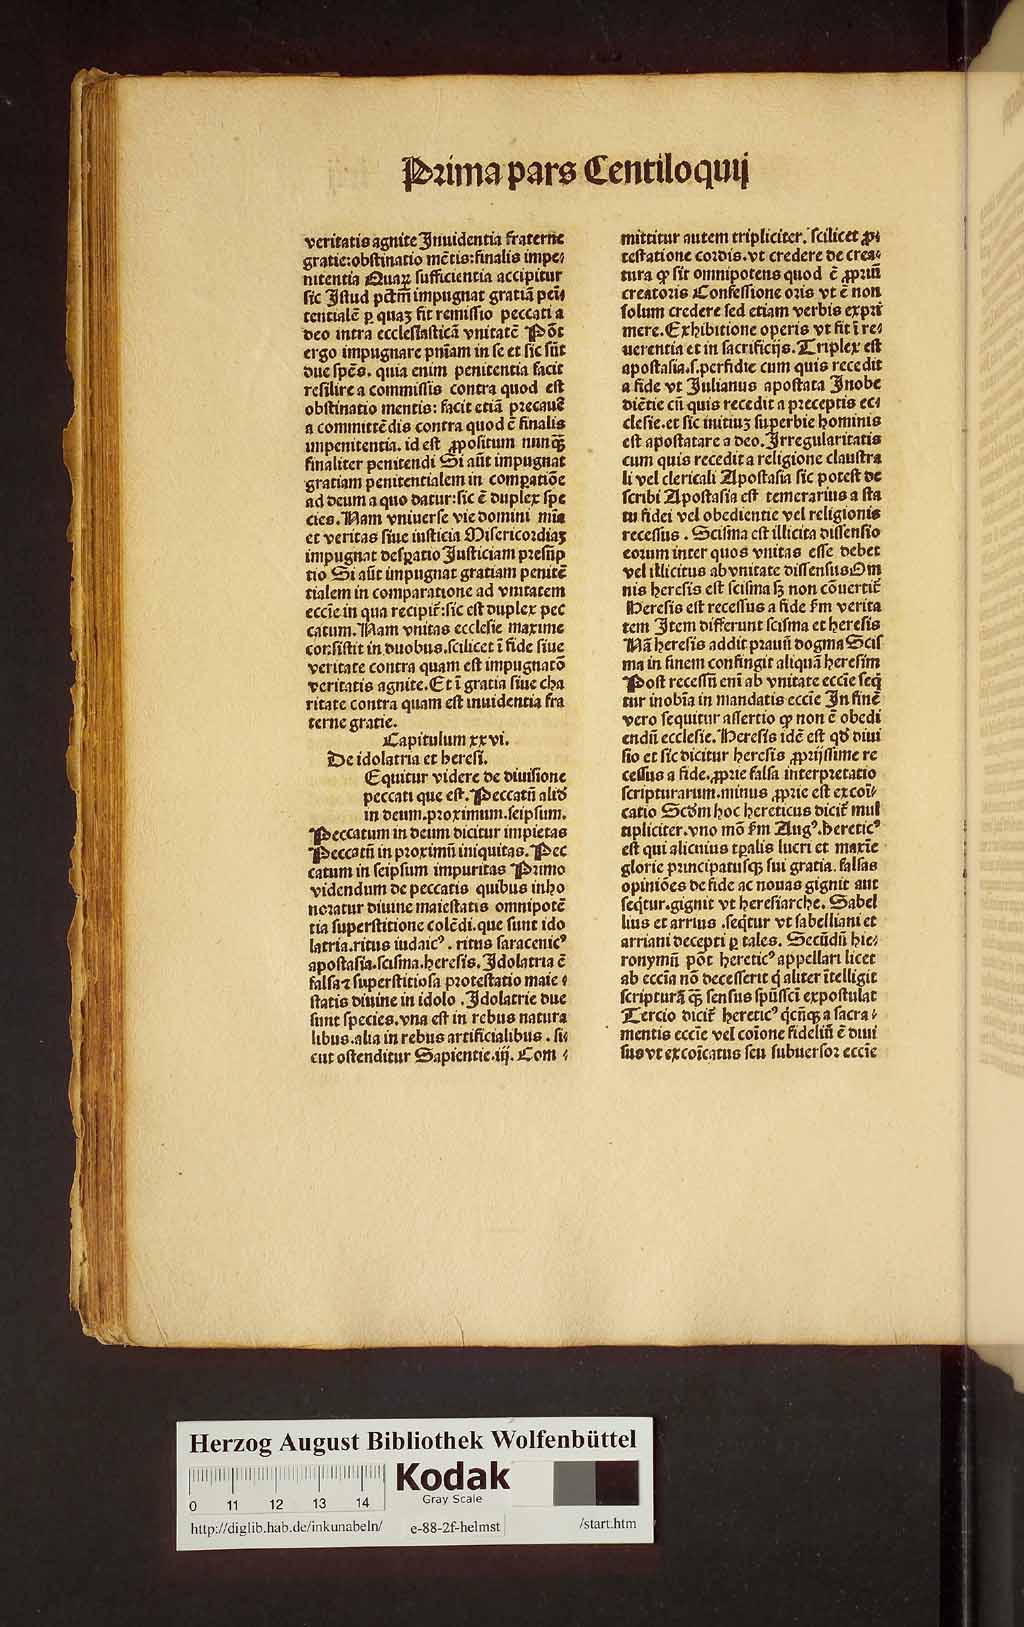 Prima pars Centiloquij
veritatis agnite Inuidentia fraterne
gratie:obstinatio mētis:finalis impe⸗
nitentia Quaꝝ sufficientia accipitur
sic Istud pctm̄ impugnat gratiā peni⸗
tentialē ꝑ quaʒ fit remissio peccati a
deo intra ecclesiasticā vnitatē Pōt
ergo impugnare pn̄iam in se et sic sūt
due spēs. quia enim penitentia facit
resilire a commissis contra quod est
obstinatio mentis: facit etiā precauē
a committēdis contra quod ē finalis
impenitentia. id est ꝓpositum nunqꝫ
finaliter penitendi Si aūt impugnat
gratiam penitentialem in comparatiōe
ad deum a quo datur:sic ē duplex spe
cies. Nam vniuerse vie domini mīa
et veritas siue iusticia Misericordiaʒ
impugnat desꝑatio Justiciam presūp
tio Si aūt impugnat gratiam penitē
tialem in comparatione ad vnitatem
eccīe in qua recipit̄:sic est duplex pec
catum. Nam vnitas ecclesie maxime
consistit in duobus.scilicet ī fide siue
veritate contra quam est impugnatō
veritatis agnite. Et ī gratia siue cha
ritate contra quam est inuidentia fra
terne gratie.
Capitulum xxvi.
De idolatria et heresi.
Equitur videre de diuisione
peccati que est. Peccatū aliđ
in deum.proximum.seipsum.
Peccatum in deum dicitur impietas
Peccatū in proximū iniquitas. Pec
catum in seipsum impuritas Primo
videndum de peccatis quibus inho
noratur diuine maiestatis omnipotē
tia superstitione colēdi.que sunt ido
latria.ritus iudaicꝰ. ritus saracenicꝰ
apostasia.scisma.heresis. Idolatria ē
falsa ⁊ superstitiosa protestatio maie⸗
statis diuine in idolo. Idolatrie due
sunt species. vna est in rebus natura
libus.alia in rebus artificialibus. si⸗
cut ostenditur Sapientie.iij. Com⸗
mittitur autem tripliciter. scilicet ꝓ⸗
testatione cordis.vt credere de crea⸗
tura ꝙ sit omnipotens quod ē ꝓpriū
creatoris Confessione oris vt ē non
solum credere sed etiam verbis expri
mere. Exhibitione operis vt fit ī re⸗
uerentia et in sacrificijs. Triplex est
apostasia.s.perfidie cum quis recedit
a fide vt Julianus apostata Inobe
diētie cū quis recedit a preceptis ec⸗
clesie.et sic initiuʒ superbie hominis
est apostatare a deo. Irregularitatis
cum quis recedit a religione claustra
li vel clericali Apostasia sic potest de
scribi Apostasia est temerarius a sta
tu fidei vel obedientie vel religionis
recessus. Scisma est illicita dissensio
eorum inter quos vnitas esse debet
vel illicitus ab vnitate dissensus Om
nis heresis est scisma sꝫ non cōuertit̄
Heresis est recessus a fide fm verita
tem Item differunt scisma et heresis
Nā heresis addit prauū dogma Scis
ma in finem confingit aliquā heresim
Post recessū enī ab vnitate eccīe seq̄
tur inobīa in mandatis eccīe In finē
vero sequitur assertio ꝙ non ē obedi
endū ecclesie. Heresis idē est qđ diui
sio et sic dicitur heresis ꝓprijssime re
cessus a fide.ꝓprie falsa interpretatio
scripturarum.minus ꝓprie est excoī⸗
catio Scđm hoc hereticus dicit̄ mul
tipliciter.vno mō fm Augꝰ.hereticꝰ
est qui alicuius tꝑalis lucri et maxīe
glorie principatusqꝫ sui gratia. falsas
opiniōes de fide ac nouas gignit aut
seq̄tur.gignit vt heresiarche. Sabel
lius et arrius .seq̄tur vt sabelliani et
arriani decepti ꝑ tales. Secūdū hie⸗
ronymū pōt hereticꝰ appellari licet
ab eccīa nō decesserit q̄ aliter ītelligit
scripturā qꝫ sensus spūssci expostulat
Tercio dicit̄ hereticꝰ q̄cūqꝫ a sacra⸗
mentis eccīe vel coīone fideliū ē diui
sus vt excoīcatus seu subuersor eccīe
Herzog August Bibliothek Wolfenbüttel
Kodak
Gray Scale
0 11 12 13 14
http://diglib.hab.de/inkunabeln/ e-88-2f-helmst /start.htm